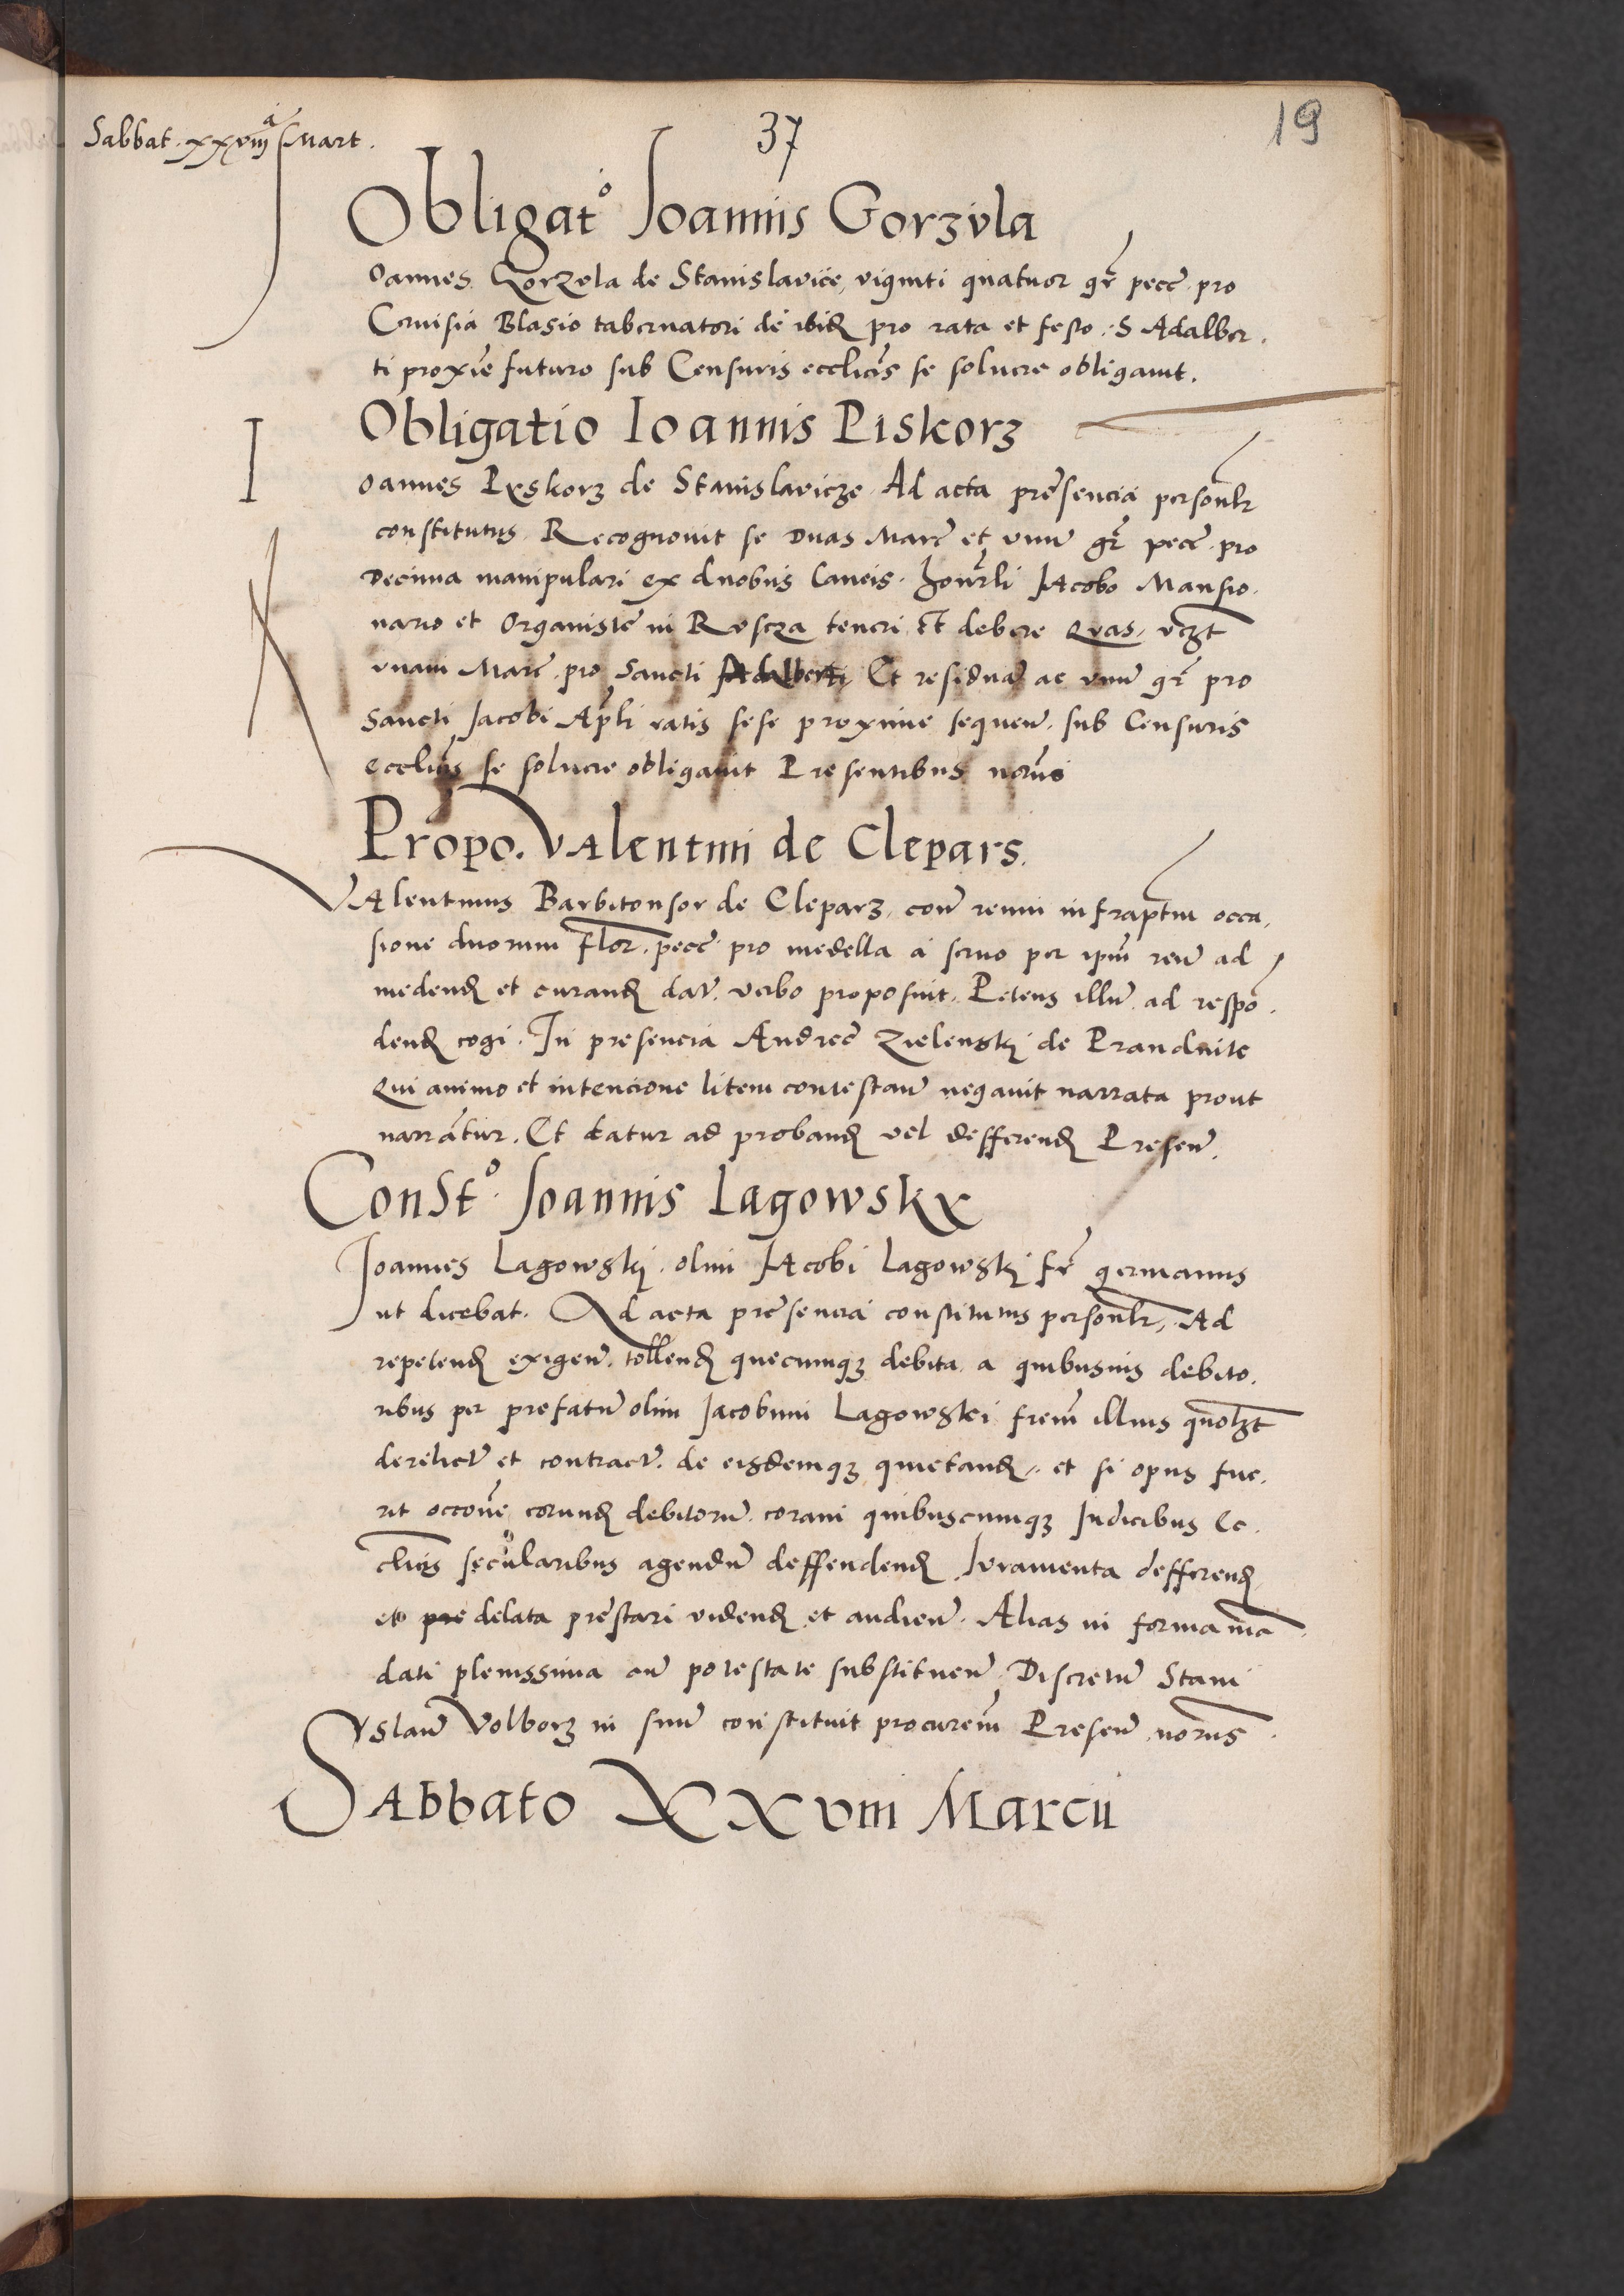 Sabbat. xxviijᵃ Mart.
37
19
Obligatº Joannis Gorzvla
Joannes Gorzela de Stanislavice, viginti quatuor gr̃ pecc̃ pro
Cervisia Blasio tabernatori de ibid̃ pro rata et festo S Adalber
ti proxiẽ futuro sub Censuris ecclicĩs se soluere obligauit.
Obligatio Ioannis Piskorz
Ioannes Pyskorz de Stanislavicze Ad acta presencia personlr̃
constitutus Recognovit se Duas Marc̃ et vnũ gr̃ pecc̃ pro
Decima manipulari ex duobus laneis honorli Jacobo Mansio
nario et Organiste in Rvscza teneri et debere Qvas, vcz̃t
vnam Marc̃ pro Sancti Adalberti Et residuã ac vnũ gr̃ pro
Sancti Jacobi Apl̃i ratis sese proxime sequeñ. sub Censuris
ecclicĩs se soluere obligauit Presentibus norũs
Propo. Valentini de Clepars.
VAlentinus Barbitonsor de Cleparz, coñ reum infraptm̃ occa
sione duorum Flor. pecc̃ pro medella a seruo per ipm̃ reũ ad
medend̃ et curand̃ dat̃. verbo proposuit, Petens illũ ad respõ
dend̃ cogi. In presencia Andree Zielenskj de Prandnite
Qui animo et intencione litem contestañ negauit narrata prout
narrãtur. Et datur ad proband̃ vel defferend̃ Preseñ.
Constº. Joannis Lagowsky
Joannes Lagowskj olim Jacobi Lagowskj fr̃ germanus
ut dicebat. Ad acta presencia constitutus personlr̃, Ad
repetend̃ exigeñ. tollend̃ quecumqz debita a quibusvis debito
ribus per prefatũ olim Jacobum Lagowskj frem̃ illius quolz̃t
derelict̃ et contract̃. de eisdemqz quietand̃, et si opus fue
rit occoñe eorund̃ debitorũ. coram quibuscumqz Judicibus Ec
clicĩs secularibus agendũ deffendend̃ Juramenta defferend̃
et delata prestari vidend̃ et audieñ. Alias in forma mã
dati plenissima cũ potestate substitueñ Discretũ Stani
yslaũ Volborz in suũ constituit procurem̃ Preseñ norũs
SAbbato XXviii Marcii